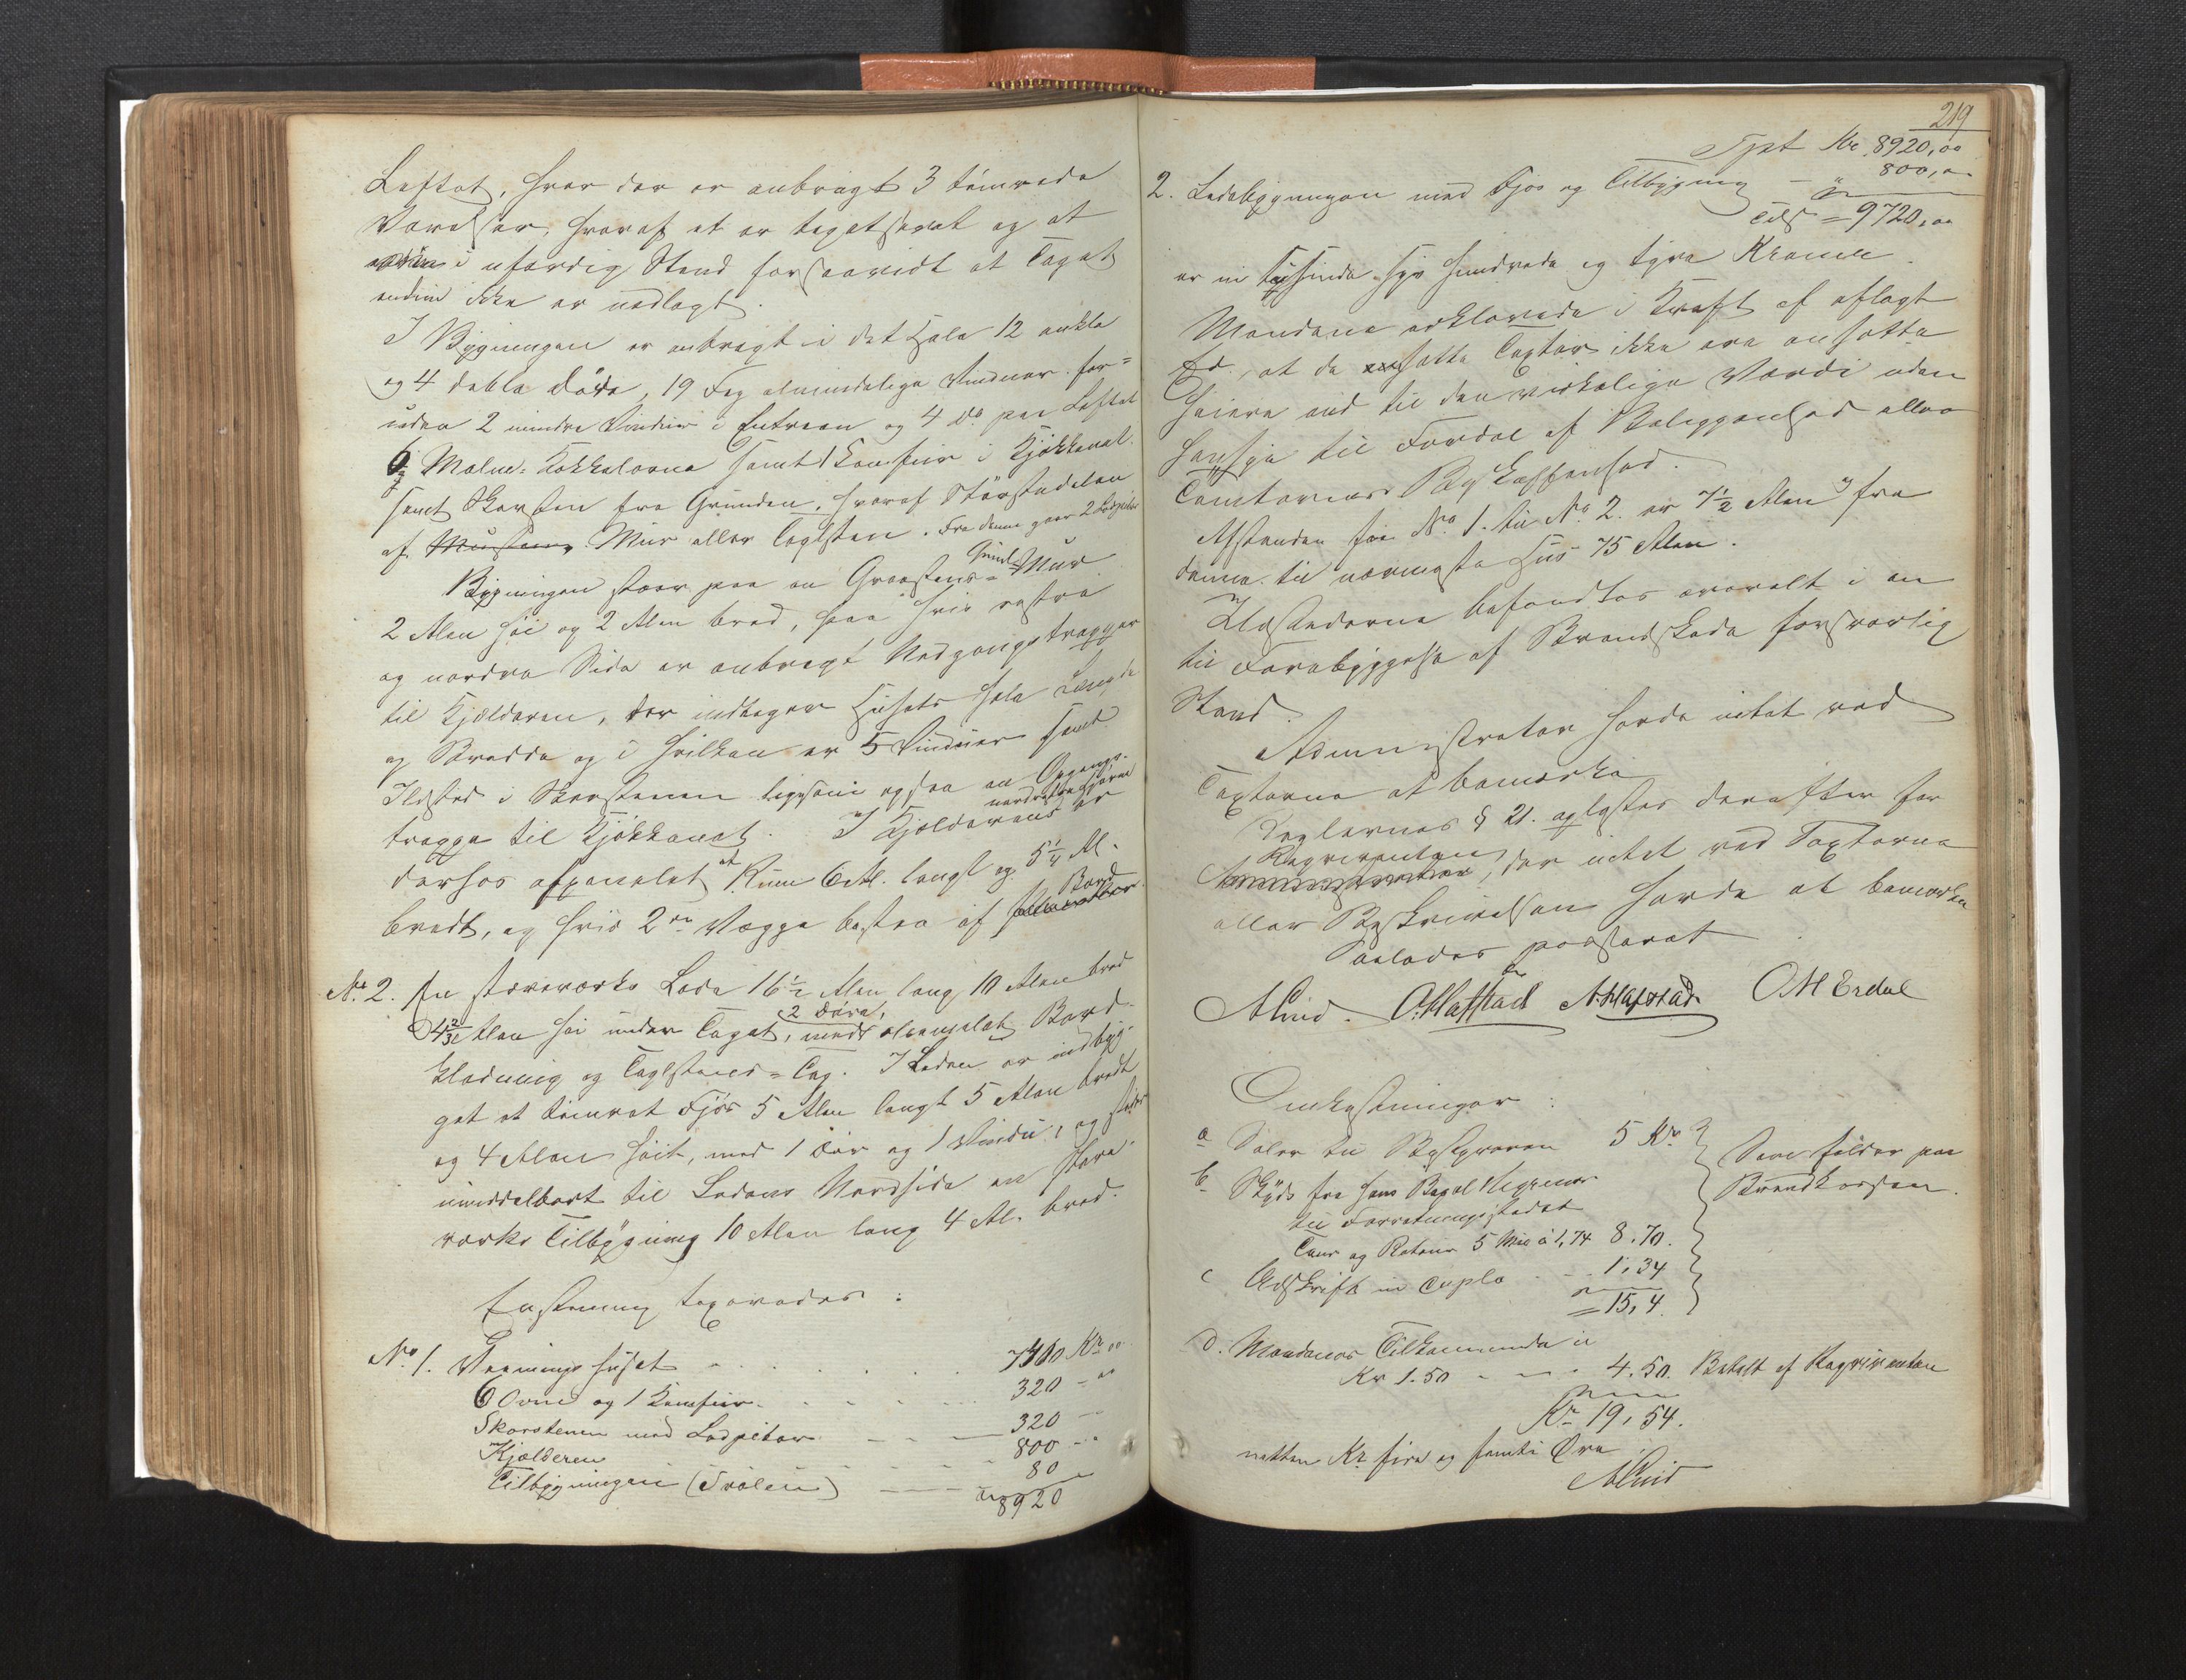 Loftet, hvor der er anbragt 3 tømrede
Værelser, hvoraf et er tapetseret og et
endnu i ufærdig Stand forsaavidt at Taget
endnu ikke er nedlagt.
I Bygningen er anbragt i det Hele 12 enkle
og 4 doble Døre, 19 Fag almindelige Vinduer for=
uden 2 mindre Vinduer i Entreen og 4 do paa Loftet
6 Kakkelovne samt 1 Komfur i Kjøkkenet
samt Skorsten fra Grunden, hvoraf Størstedelen
af Mur eller Teglsten. Fra denne gaar 2 Lodpiber
Bygningen staar paa en Graastens= Grund=Mur
2 Alen høi og 2 Alen bred, paa hvis østre
og nordre Side er anbragt Nedgangstrapper
til Kjælderen, der indtager Husets hele Længde
og Bredde og i hvilken er 5 Vinduer samt
Ildsted i Skorstenen ligesom ogsaa en Opgangs-
trappe til Kjøkkenet. I Kjælderens nordvestre Hjørne er
derhos afpanelet et Rum 6 Al. langt og 5¼ Al.
bredt, og hvis 2de Vægge bestaa af Bord
No 2. En stavværks Lade 16½ Alen lang 10 Alen bred
4⅔ Alen høi under Taget, 2 Døre, med upanelet Bord-
klædning og Teglstens=Tag. I Laden er indbyg-
get et tømret Fjøs 5 Alen langt 5 Alen bredt
og 4 Alen høit, med 1 Dør og 1 Vindu, og støder
umiddelbart til Ladens Nordside en stav-
værks Tilbygning 10 Alen lang 4 Al. bred.
Enstemmig taxeredes:
No 1. Vaaningshuset 7400 Kr 00
6 Ovne og 1 Komfur 320 - 00
Skorstenen med Lodpiber 320 -
Kjælderen 800 -
Tilbygningen (Svalen) 80
8920
219
Tpt Kr 8920,00
2. Ladebygningen med Fjøs og Tilbygning - 800,00
Tils = 9720,00
er ni tusinde syv hundrede og tyve Kroner.
Mændene erklærede i Kraft af aflagt
Ed, at de ansatte Taxter ikke ere ansatte
høiere end til den virkelige Værdi uden
Hensyn til Fordel af Beliggenhed eller
Tomternes Beskaffenhed.
Afstanden fra No 1. til No 2. er 7½ Alen og fra
denne til nærmeste Hus 75 Alen.
Ildstederne befandtes overalt i en
til Forebyggelse af Brandskade forsvarlig
Stand.
Administrator havde intet ved
Taxterne at bemærke
Reglernes § 21. oplæstes derefter for
Rekvirenten, der intet ved Taxterne
eller Beskrivelsen havde at bemærke
Saaledes passeret
Alme. O. Hafstad A. Hafstad O M Erdal
Omkostninger:
a Salær til Bestyreren 5 Kr
b. Skyds fra hans Bopæl
til Forretningsstedet
Tour og Retour 5 Mil à 1,74 8.70.
c Udskrift in duplo 1,34
= 15,4
Disse falder paa
Brandkassen.
d. Mændenes Tilkommende à
Kr 1.50 4.50. Betalt af Rekvirenten
Kr 19,54.
nitten Kr fire og femti Øre